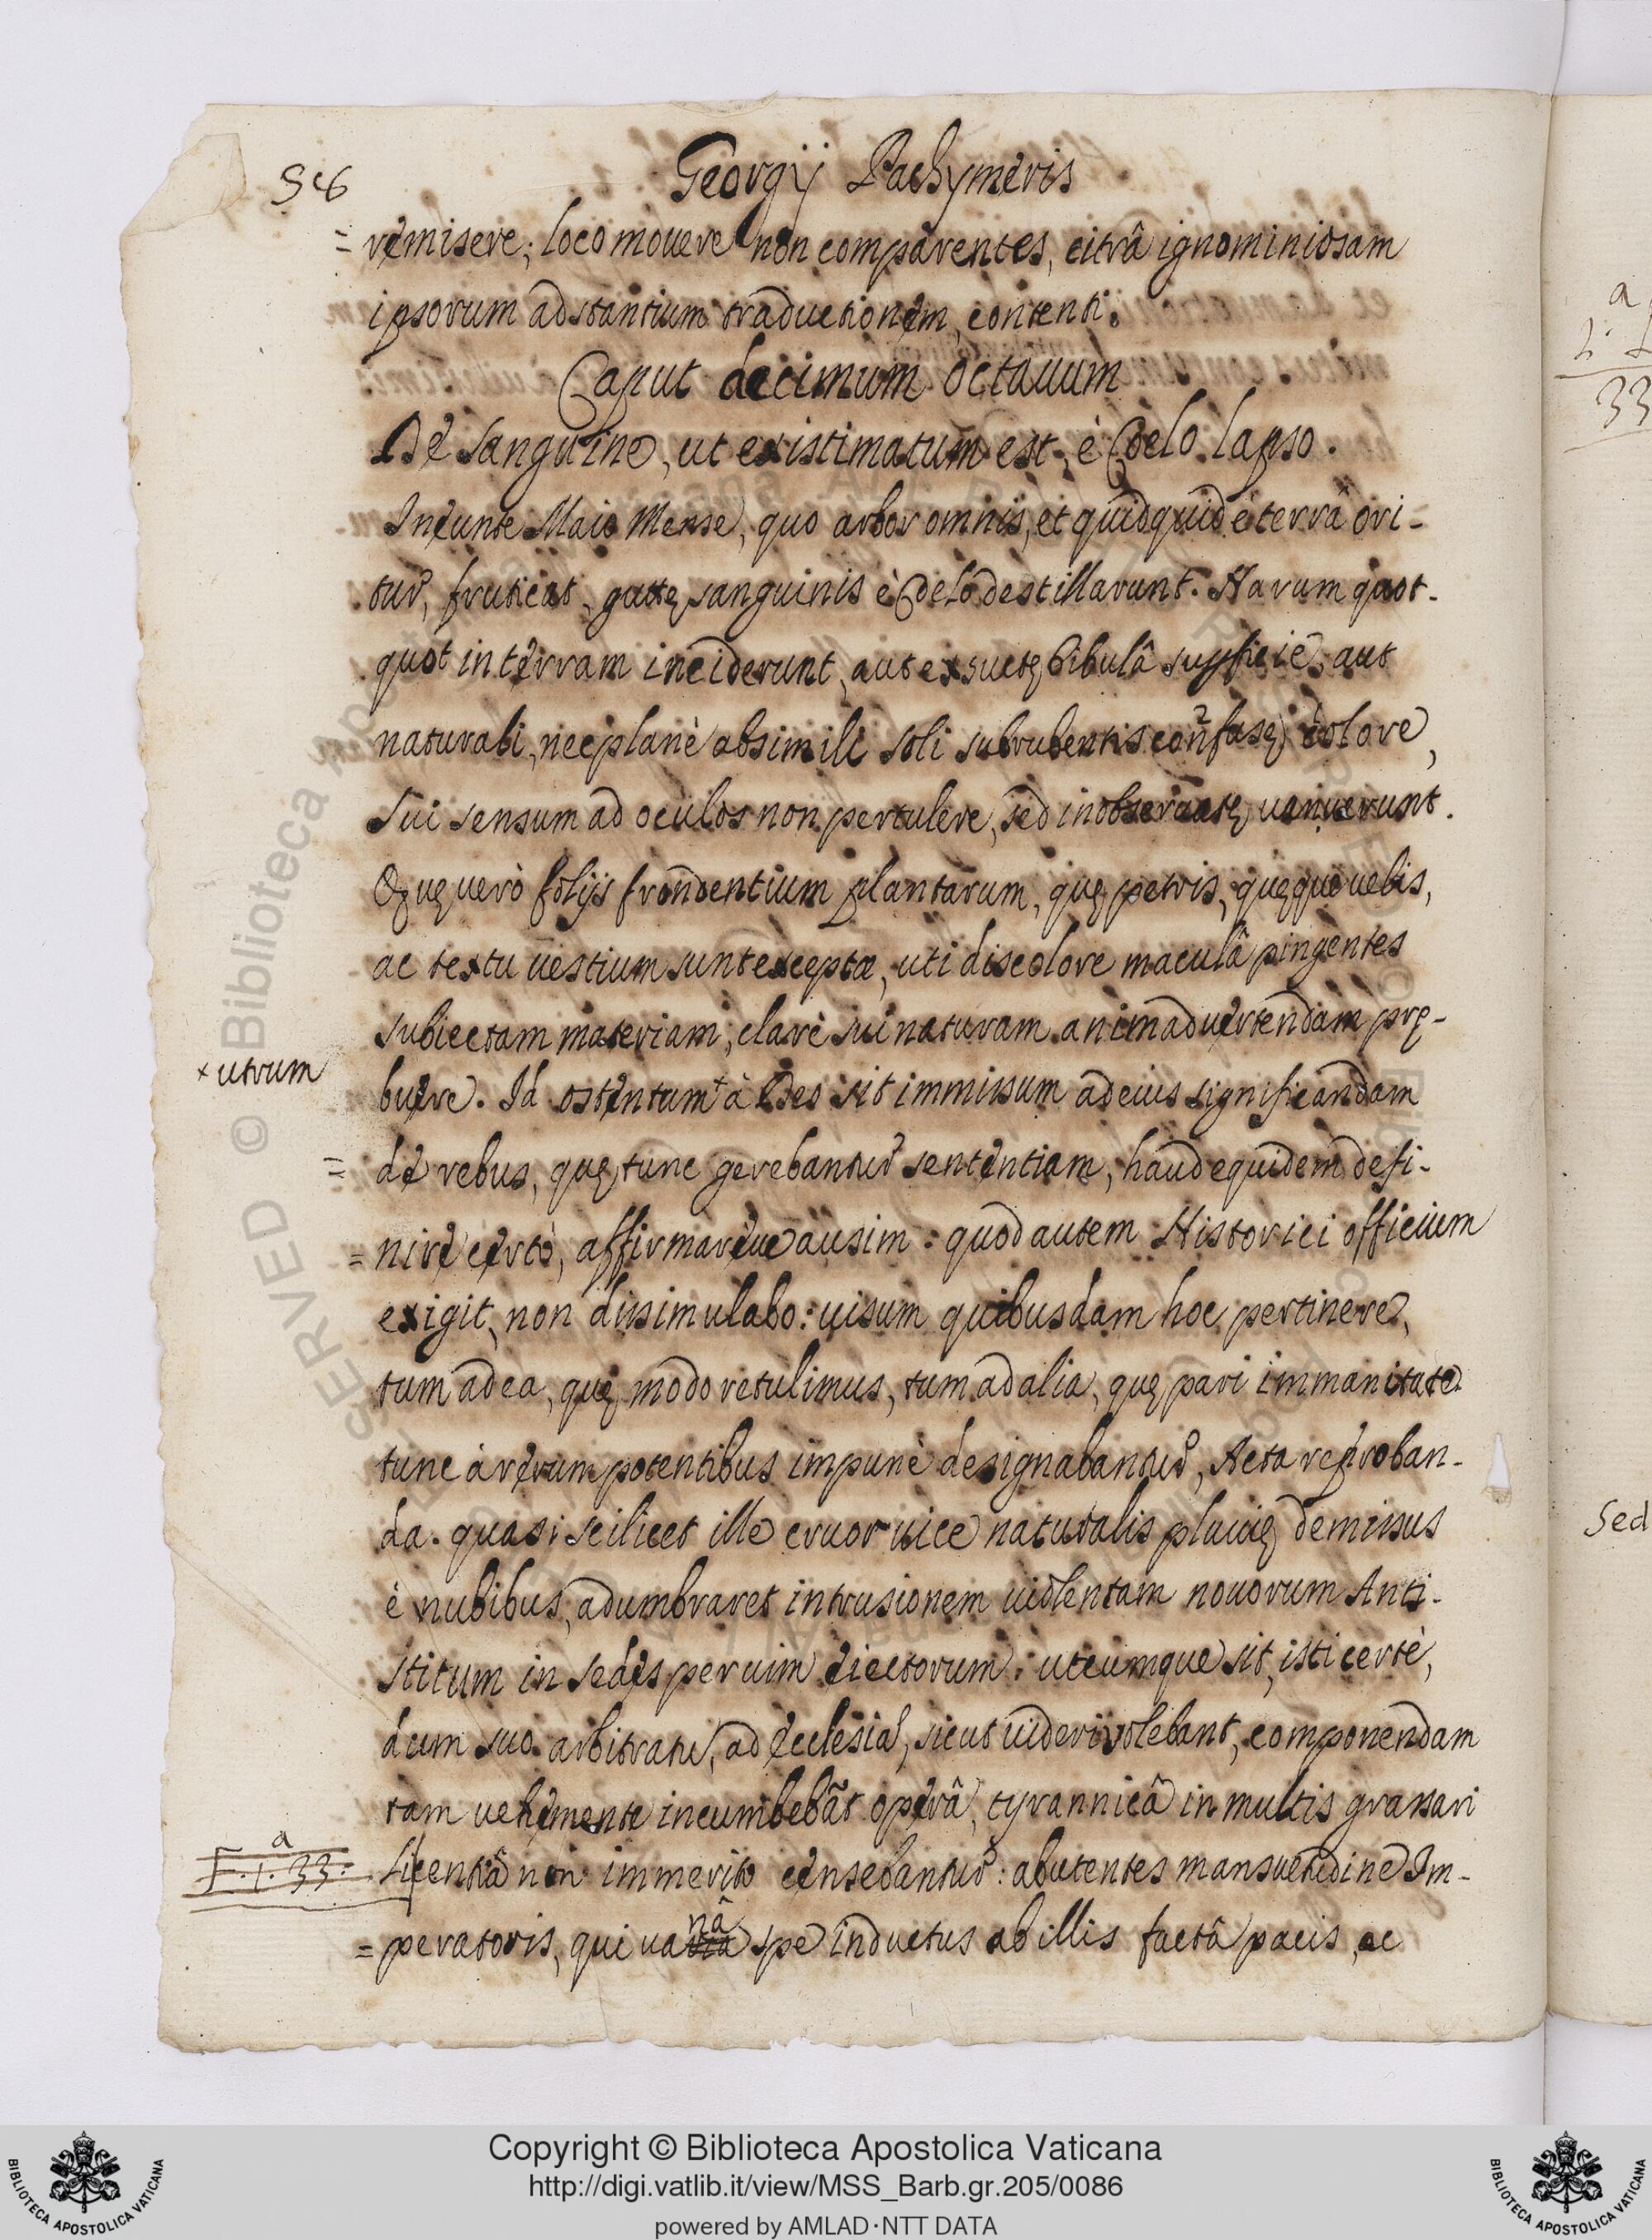 Georgij Pachymeris
= remisere; loco mouere non comparentes, citrâ ignominiosam
ipsorum adstantium traductionem, contenti.
Caput decimum octauum
De sanguine, ut existimatum est, è Coelo lapso.
Ineunte Maio Mense, quo arbor omnis, et quidquid è terrâ ori-
tur, fruticat, guttę sanguinis è Coelo destillarunt. Harum quot-
quot in terram inciderunt, aut exsuctę bibulâ superficie, aut
naturali, nec planè absimili soli subrubentis confusę colore,
sui sensum ad oculos non pertulere, sed inobseruatę uanuerunt.
Quę uerò folijs frondentium plantarum, quę petris, quęque uelis,
ac textu uestium sunt exceptæ, uti discolore maculâ pingentes
subiectam materiam, clarè sui naturam animaduertendam prę-
x utrum
buere. Id ostentum x à Deo sit immissum ad eius significandam
= de rebus, quę tunc gerebantur sententiam, haud equidem defi-
= nire certò, affirmareue ausim: quod autem Historici officium
exigit, non dissimulabo: uisum quibusdam hoc pertinere,
tum ad ea, quę modo retulimus, tum ad alia, quę pari immanitate
tunc à rerum potentibus impunè designabantur, Acta reproban-
da. quasi scilicet ille cruor uice naturalis pluuię demissus
è nubibus, adumbraret intrusionem uiolentam nouorum Anti-
stitum in sedes per uim eiectorum: utcumque sit, isti certè,
dum suo arbitratu, ad Ecclesiã, sicut uideri uolebant, componendam
tam uehemente incumbebãt operâ, tyrannicâ in multis grassari
a
F. 1. 33.
licentiâ non immerito censebantur: abutentes mansuetudine Im-
nâ
= peratoris, qui ua spe inductus ab illis factâ pacis, ac
a
33
Sed
© Biblioteca Apostolica Vaticana
Copyright © Biblioteca Apostolica Vaticana
http://digi.vatlib.it/view/MSS_Barb.gr.205/0086
powered by AMLAD·NTT DATA
BIBLIOTECA APOSTOLICA VATICANA
BIBLIOTECA APOSTOLICA VATICANA